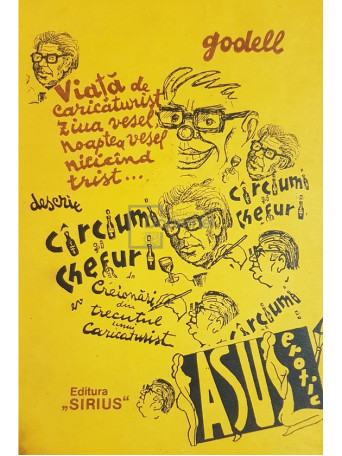 godell
Viață de
caricaturist
ziua vesel
noaptea vesel
nicicînd
trist...
descrie
cîrciumi
și
chefuri
cîrciumi
și
chefuri
în
Creionări
din
trecutul
unui
caricaturist
cîrciumi
cîrciumi
chefuri
Editura
„SIRIUS“
ASU
erotic